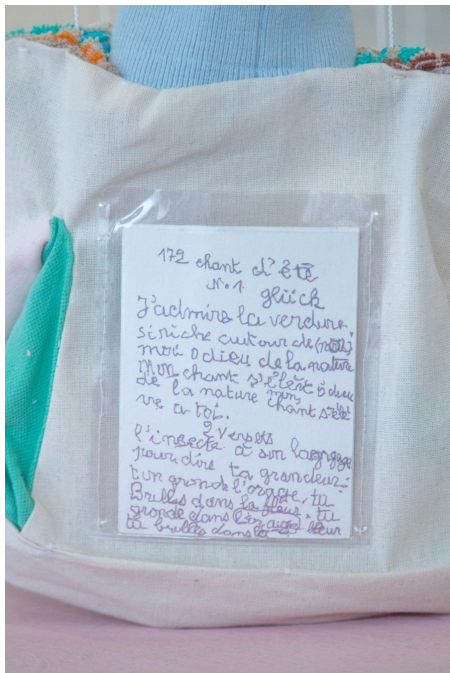 172 chant d'été
N.1. glück
J'admire la verdure
si riche autour de (moi)
moi O dieu de la nature
mon chant s'élèt ô dieu
de la nature mon chant s'élè
ve a toi.
2 versets
l'insecte a son langage
pour dire ta grandeur:
tu gronde l'orage. tu
Brulles dans la fleur. tu
gronde dans l'orage
tu brulles dans la fleur